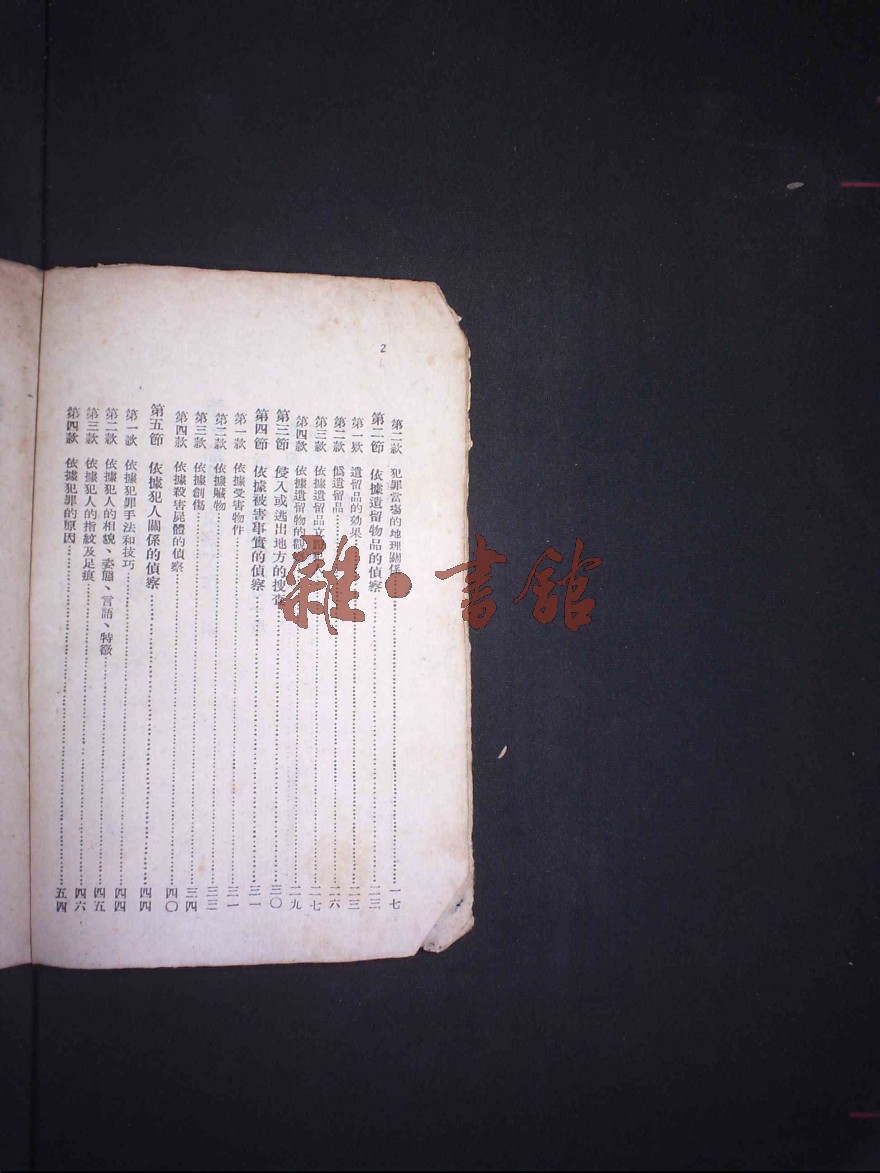 2
第二款 犯罪當場的地理關係⋯⋯一七
第二節 依據遺留物品的偵察⋯⋯二三
第一欵 遺留品的効果⋯⋯二三
第二款 僞遺留品⋯⋯二六
第三款 依據遺留品⋯⋯二七
第四款 依據遺留物的⋯⋯二九
第三節 侵入或逃出地方的搜查⋯⋯三〇
第四節 依據被害事實的偵察⋯⋯三一
第一款 依據受害物件⋯⋯三一
第二款 依據贓物⋯⋯三三
第三款 依據創傷⋯⋯三四
第四款 依據殺害屍體的偵察⋯⋯四〇
第五節 依據犯人關係的偵察⋯⋯四四
第一款 依據犯罪手法和技巧⋯⋯四四
第二款 依據犯人的相貌、姿態、言語、特徵⋯⋯四五
第三款 依據犯人的指紋及足痕⋯⋯四六
第四款 依據犯罪的原因⋯⋯五四
雜·書館